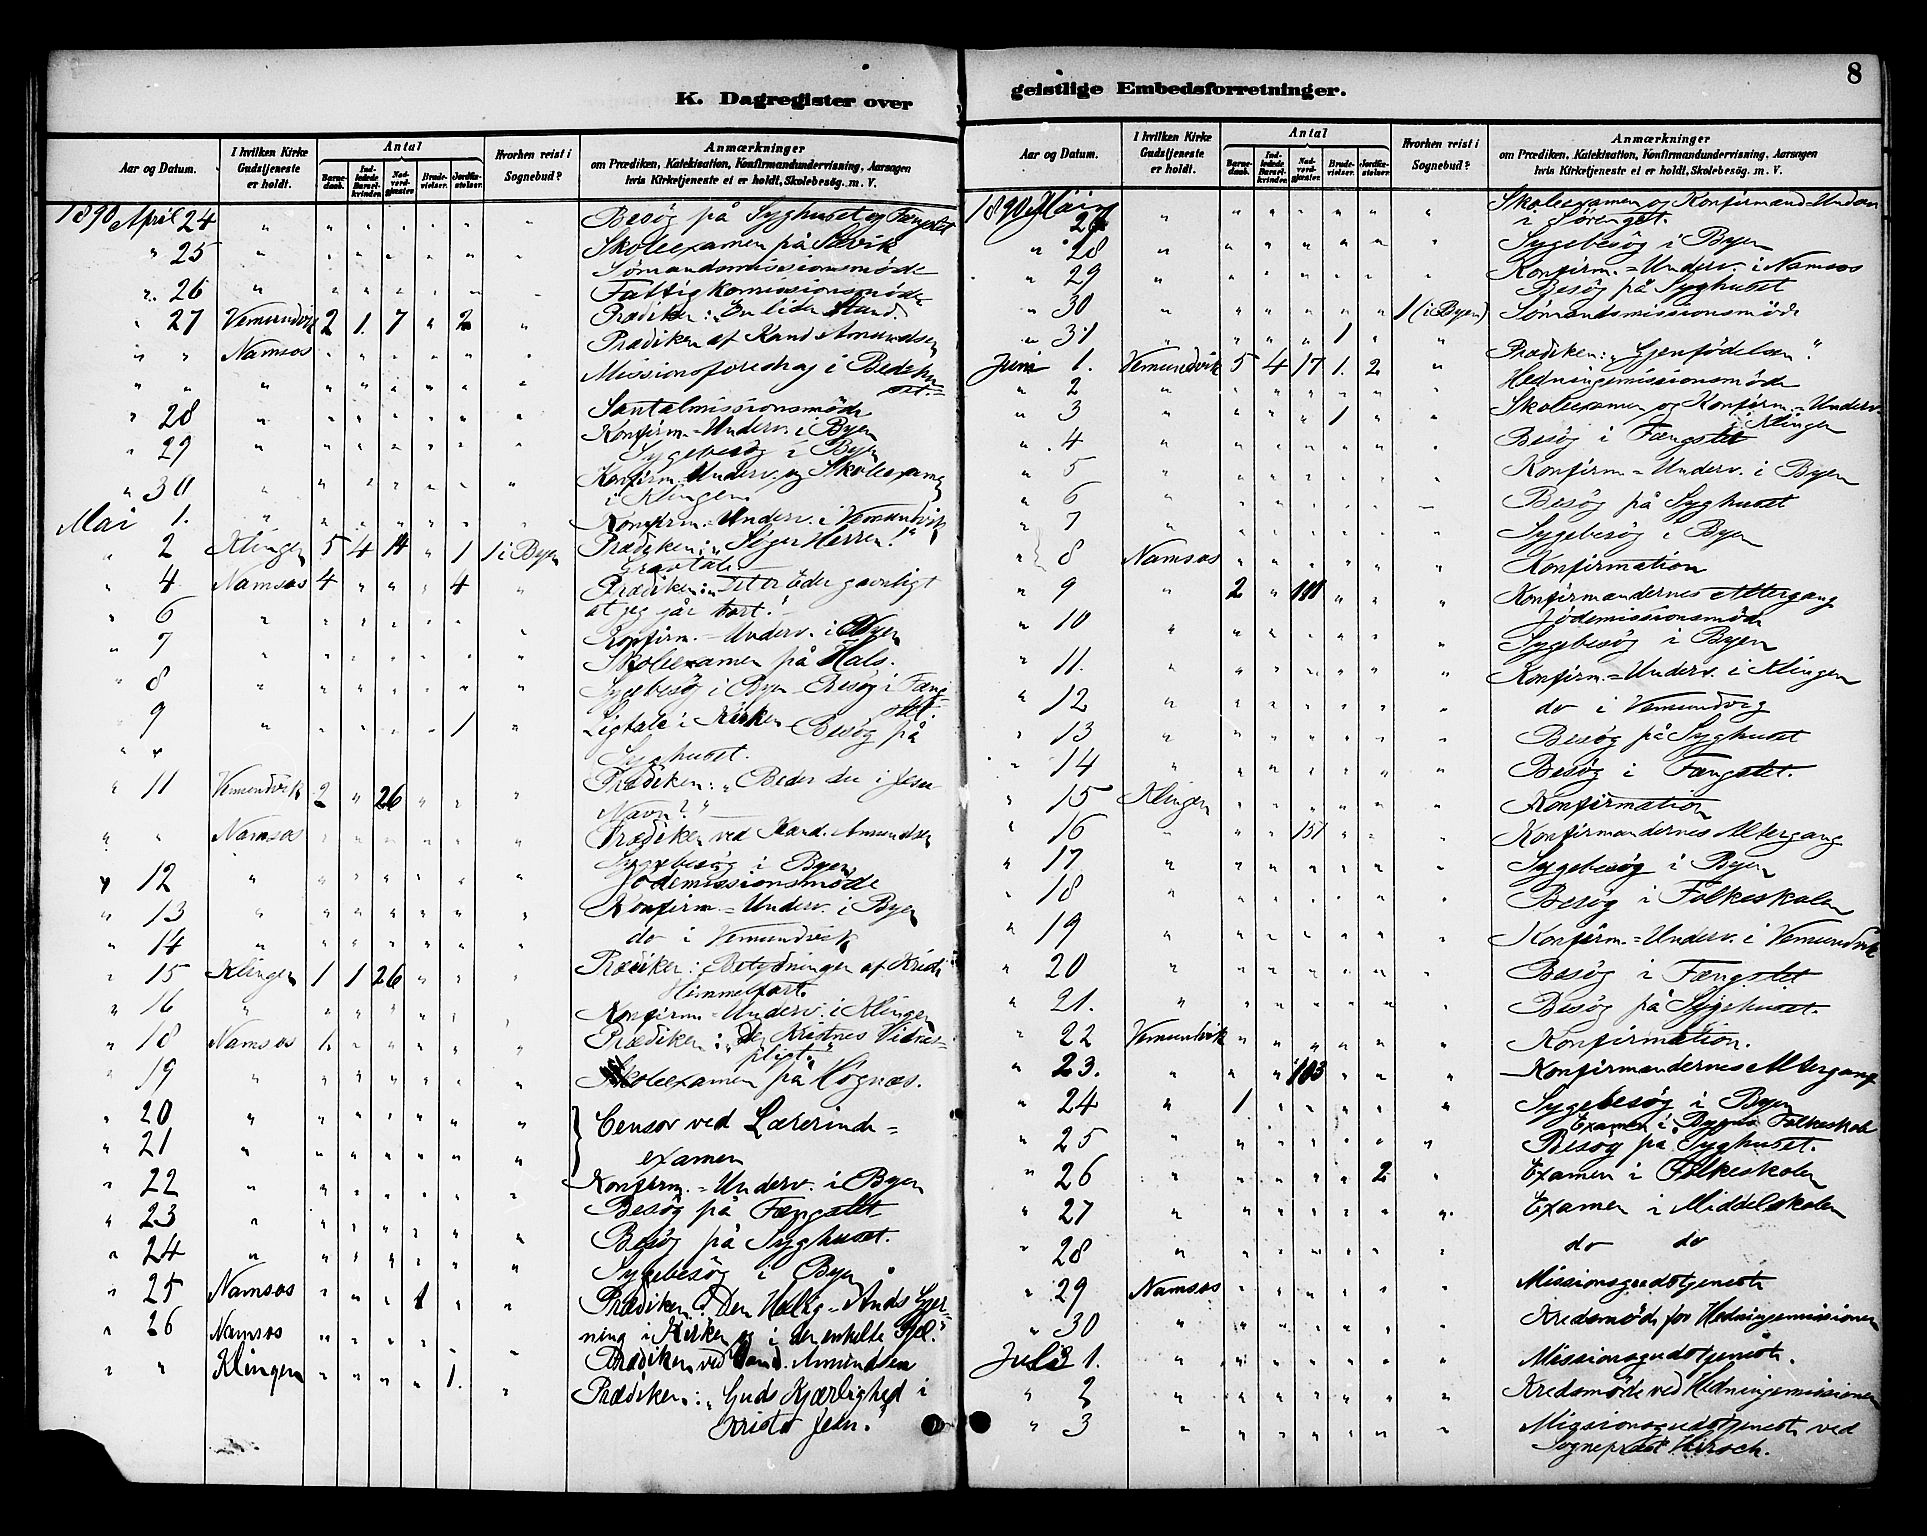 8
K. Dagregister over
geistlige Embedsforretninger.
Aar og Datum.
I hvilken Kirke Gudstjeneste er holdt.
Antal
Barnedaab.
Indledede Barselkvinder.
Nadverdgjester.
Brudevielser.
Jordfæstelser.
Hvorhen reist i Sognebud?
Anmærkninger
om Prædiken, Katekisation, Konfirmandundervisning, Aarsagen
hvis Kirketjeneste ei er holdt, Skolebesøg. m. V.
1890 April 24 " " " " " " " Besøg på Syghuset og Fængslet
" 25 " " " " " " " Skoleexamen på
Sømandsmissionsmøde
" 26 " " " " " " " Fattigkommissionsmøde
" 27 Vemundvik 2 1. 7 " 2 " Prædiken: "En liden Stund"
" " Namsos " " " " " " Prædiken af Kand. Amundsen
" " " " " " " " " Missionsforedrag i Bedehu
set.=
" 28 " " " " " " " Santalmissionsmøde
Konfirm.-Underv. i Byen
" 29 " " " " " " " Sygebesøg i Byen
" 30 " " " " " " " Konfirm.-Underv. og Skoleexamen
i Klingen.
Mai 1. " " " " " " " Konfirm.-Underv. i Vemundvik
" 2 Klingen 5 4 14 " 1 1 i Byen Prædiken: "Søger Herren!"
Gravtale
" 4 Namsos 4 " " " 4 " Prædiken: "Det er eder gavnligt
at jeg går bort."
" 6 " " " " " " " Konfirm.-Underv. i Byen
" 7 " " " " " " " Skoleexamen på Hals.
" 8 " " " " " " " Sygebesøg i Byen - Besøg i Fæng-
slet.
" 9 " " " " " 1 " Ligtale i Kirken - Besøg på
Syghuset.
" 11 Vemundvik 2 " 26 " " " Prædiken: "Beder du i Jesu
Navn?"
" " Namsos " " " " " " Prædiken ved Kand. Amundsen
Sygebesøg i Byen
" 12 " " " " " " " Jødemissionsmøde
" 13 " " " " " " " Konfirm.=Underv. i Byen
" 14 " " " " " " " do i Vemundvik
" 15 Klingen 1 1 26 " " " Prædiken: "Betydningen af Kristi
Himmelfart.
" 16 " " " " " " " Konfirm.-Underv. i Klingen
" 18 Namsos 1. " " " " " Prædiken: "De Kristnes Vidnes-
pligt."
" 19 " " " " " " " Skoleexamen på Høgnæs.
" 20 " " " " " " " Censor ved Lærerinde=
" 21 " " " " " " " examen
" 22 " " " " " " " Konfirm.=Underv. i Byen
" 23 " " " " " " " Besøg på Fængslet
" 24 " " " " " " " Besøg på Syghuset.
Sygebesøg i Byen
" 25 Namsos " " " 1 " " Prædiken: "Den Hellig-Ånds Gjer-
ning i Kirken og i den enkelte Sjel."
" 26 Namsos " " " " " " Prædiken ved Kand. Amundsen
" " Klingen " " " " 1. " Prædiken: "Guds Kjærlighed i
Kristo Jesu."
Aar og Datum.
I hvilken Kirke Gudstjeneste er holdt.
Antal
Barnedaab.
Indledede Barselkvinder.
Nadverdgjester.
Brudevielser.
Jordfæstelser.
Hvorhen reist i Sognebud?
Anmærkninger
om Prædiken, Katekisation, Konfirmandundervisning, Aarsagen
hvis Kirketjeneste ei er holdt, Skolebesøg. m. V.
1890 Mai " " " " " " " Skoleexamen og Konfirmand-Underv
i
" 28 " " " " " " " Sygebesøg i Byen
" 29 " " " " " " " Konfirm.=Underv. i Namsos
Besøg på Syghuset
" 30 " " " " " " 1 (i Byen) Sømandsmissionsmøde
" 31 " " " " 1 " "
Juni 1. Vemundvik 5 4 17 1. 2 " Prædiken: "Gjenfødelsen."
" 2 " " " " " " " Hedningemissionsmøde
" 3 " " " " 1 " " Skoleexamen og Konfirm.=Underv.
i Klingen
" 4 " " " " " " " Besøg i Fængslet
" 5 " " " " " " " Konfirm.=Underv. i Byen
" 6 " " " " " " " Besøg på Syghuset
" 7 " " " " " " " Sygebesøg i Byen
" 8 Namsos " " " " " " Konfirmation
" 9 " 2 " " " " Konfirmandernes Altergang
" 10 " " " " " " " Jødemissionsmøde
Sygebesøg i Byen
" 11. " " " " " " " Konfirm.=Underv. i Klingen
" 12 " " " " " " " do i Vemundvig
" 13 " " " " " " " Besøg på Syghuset
" 14 " " " " " " " Besøg i Fængslet.
" 15 Klingen " " " " " " Konfirmation
" 16 " " " 151 " " " Konfirmandernes Altergang
" 17 " " " " " " " Sygebesøg i Byen
" 18 " " " " " " " Besøg i Folkeskolen
" 19 " " " " " " " Konfirm.=Underv. i Vemundvik
" 20 " " " " " " " Besøg i Fængslet
" 21. " " " " " " " Besøg på Syghuset.
" 22 Vemundvik " " " " " " Konfirmation.
" 23. " " " 103 " " " Konfirmandernes Altergang
" 24 " 1 " " " " " Sygebesøg i Byen
Examen i Byens Folkeskole
" 25 " " " " " " " Besøg på Syghuset.
" 26 " " " " " 2 " Examen i Folkeskolen
" 27 " " " " " " " Examen i Middelskolen
" 28 " " " " " " " do do
" 29 Namsos " " " " " " Missionsgudstjeneste
" 30 " " " " " " " Kredsmøde for Hedningemissionen
Juli 1. " " " " " " " Missionsgudstjeneste.
" 2 " " " " " " " Kredsmøde ved Hedningemissionen
" 3 " " " " " " " Missionsgudstjeneste ved
Sogneprest Hirsch.